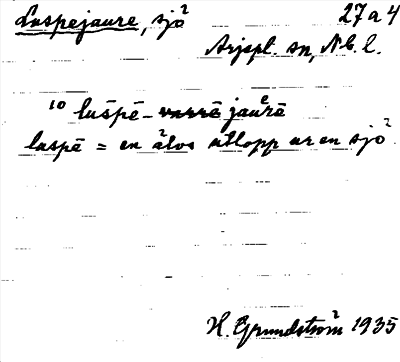 Luspejaure, sjö 27a4
Arjepl. sn, Nb. l.
10 luśpē-varrē jaurē
luspē = en älvs utlopp ur en sjö
H. Grundström 1935